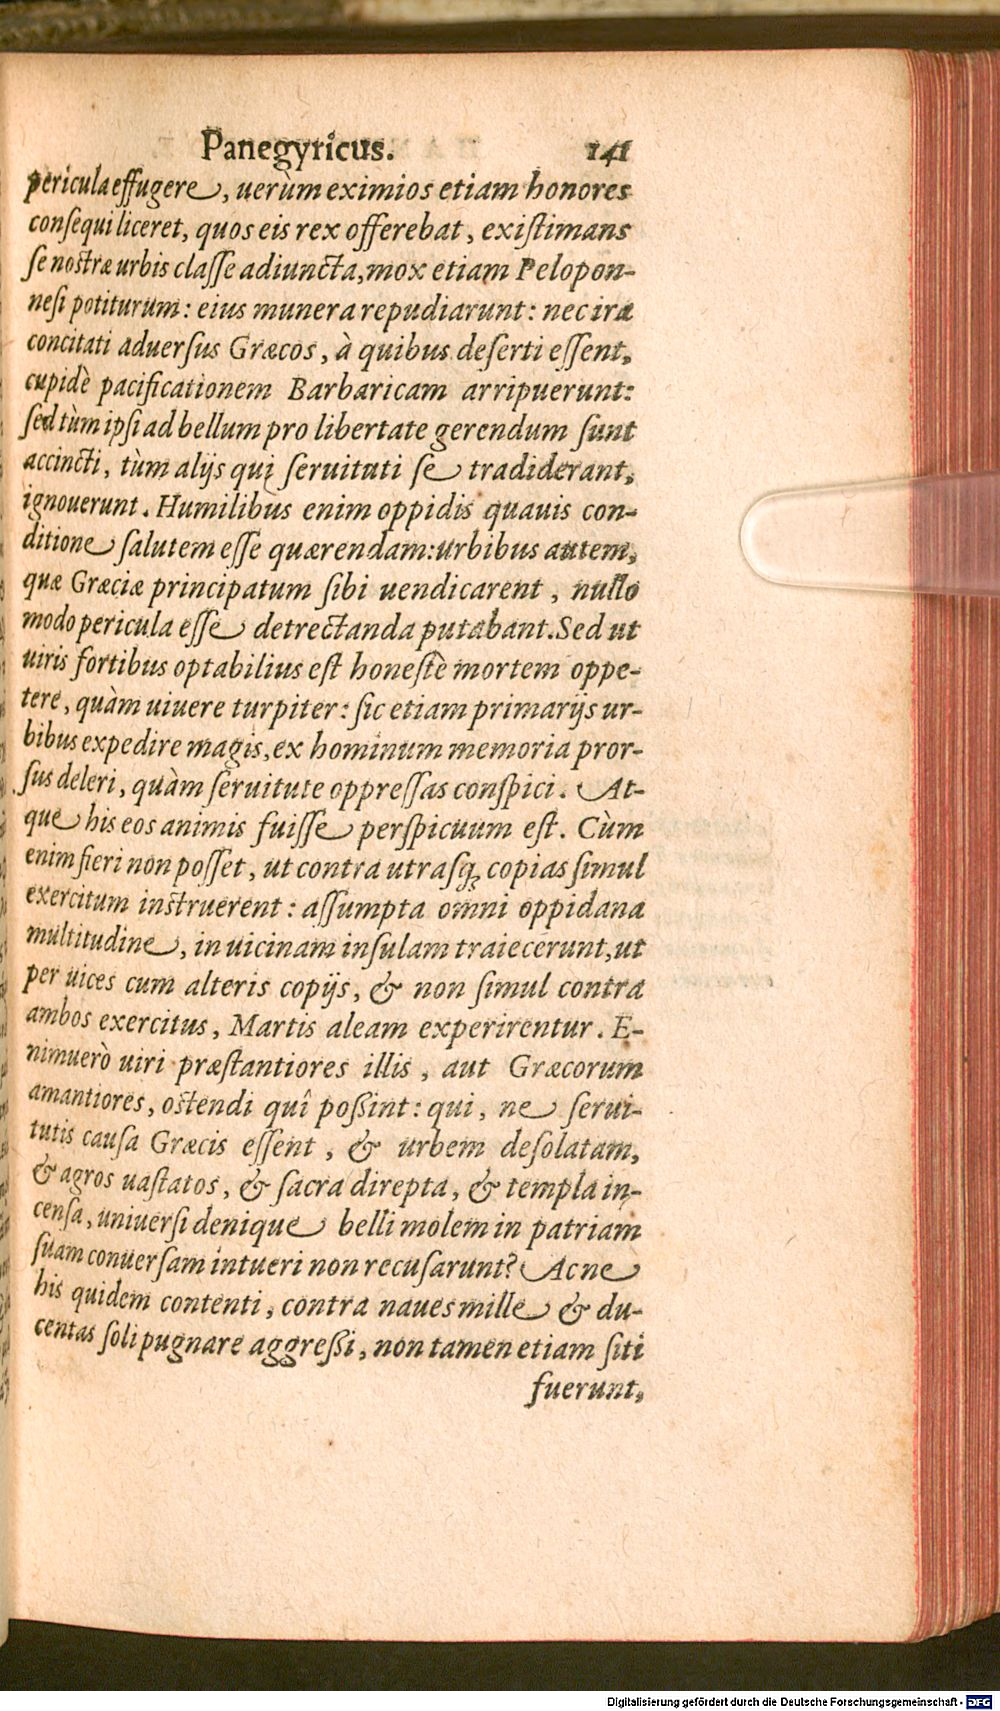 Panegyricus. 141
pericula effugere, uerùm eximios etiam honores
conſequi liceret, quos eis rex offerebat, exiſtimans
ſe noſtræ urbis claſſe adiuncta, mox etiam Pelopon-
neſi potiturum: eius munera repudiarunt: nec ira
concitati aduerſus Græcos, à quibus deſerti eſſent,
cupidè pacificationem Barbaricam arripuerunt:
ſed tùm ipſi ad bellum pro libertate gerendum ſunt
accincti, tùm alijs qui ſeruituti ſe tradiderant,
ignouerunt. Humilibus enim oppidis quauis con-
ditione ſalutem eſſe quærendam: urbibus autem,
quæ Græciæ principatum ſibi uendicarent, nullo
modo pericula eſſe detrectanda putabant. Sed ut
uiris fortibus optabilius eſt honeſtè mortem oppe-
tere, quàm uiuere turpiter: ſic etiam primarijs ur-
bibus expedire magis, ex hominum memoria pror-
ſus deleri, quàm ſeruitute oppreſſas conſpici. At-
que his eos animis fuiſſe perſpicuum eſt. Cùm
enim fieri non poſſet, ut contra utraſq; copias ſimul
exercitum inſtruerent: aſſumpta omni oppidana
multitudine, in uicinam inſulam traiecerunt, ut
per uices cum alteris copijs, & non ſimul contra
ambos exercitus, Martis aleam experirentur. E-
nimuerò uiri præſtantiores illis, aut Græcorum
amantiores, oſtendi quî poßint: qui, ne ſerui-
tutis cauſa Græcis eſſent, & urbem deſolatam,
& agros uaſtatos, & ſacra direpta, & templa in-
cenſa, uniuerſi denique belli molem in patriam
ſuam conuerſam intueri non recuſarunt? Ac ne
his quidem contenti, contra naues mille & du-
centas ſoli pugnare aggreßi, non tamen etiam ſiti
fuerunt,
Digitalisierung gefördert durch die Deutsche Forschungsgemeinschaft - DFG